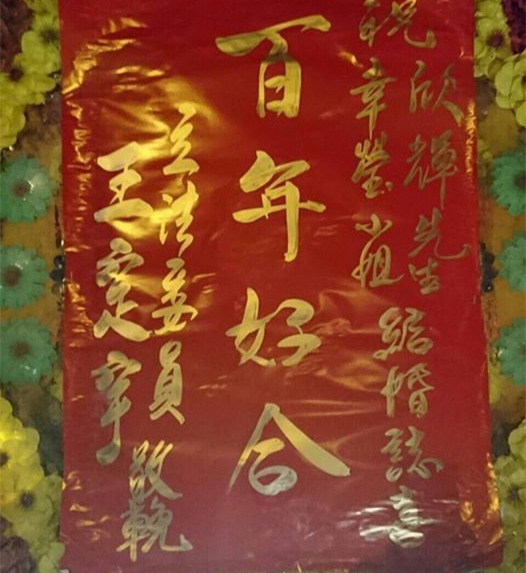 祝欣輝先生
幸瑩小姐
結婚誌喜
百年好合
立法委員
王定宇
敬輓